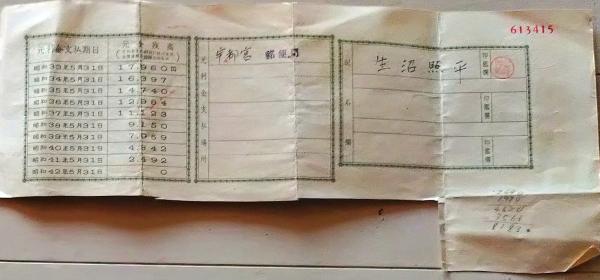 613415
元利金支払期日 元金残高
昭和33年5月31日 17,960円
昭和34年5月31日 16,397
昭和35年5月31日 14,740
昭和36年5月31日 12,984
昭和37年5月31日 11,123
昭和38年5月31日 9,150
昭和39年5月31日 7,059
昭和40年5月31日 4,842
昭和41年5月31日 2,492
昭和42年5月31日 0
元利金支払場所
宇都宮 郵便局
記名欄
生沼照平
印鑑欄
印鑑欄
印鑑欄